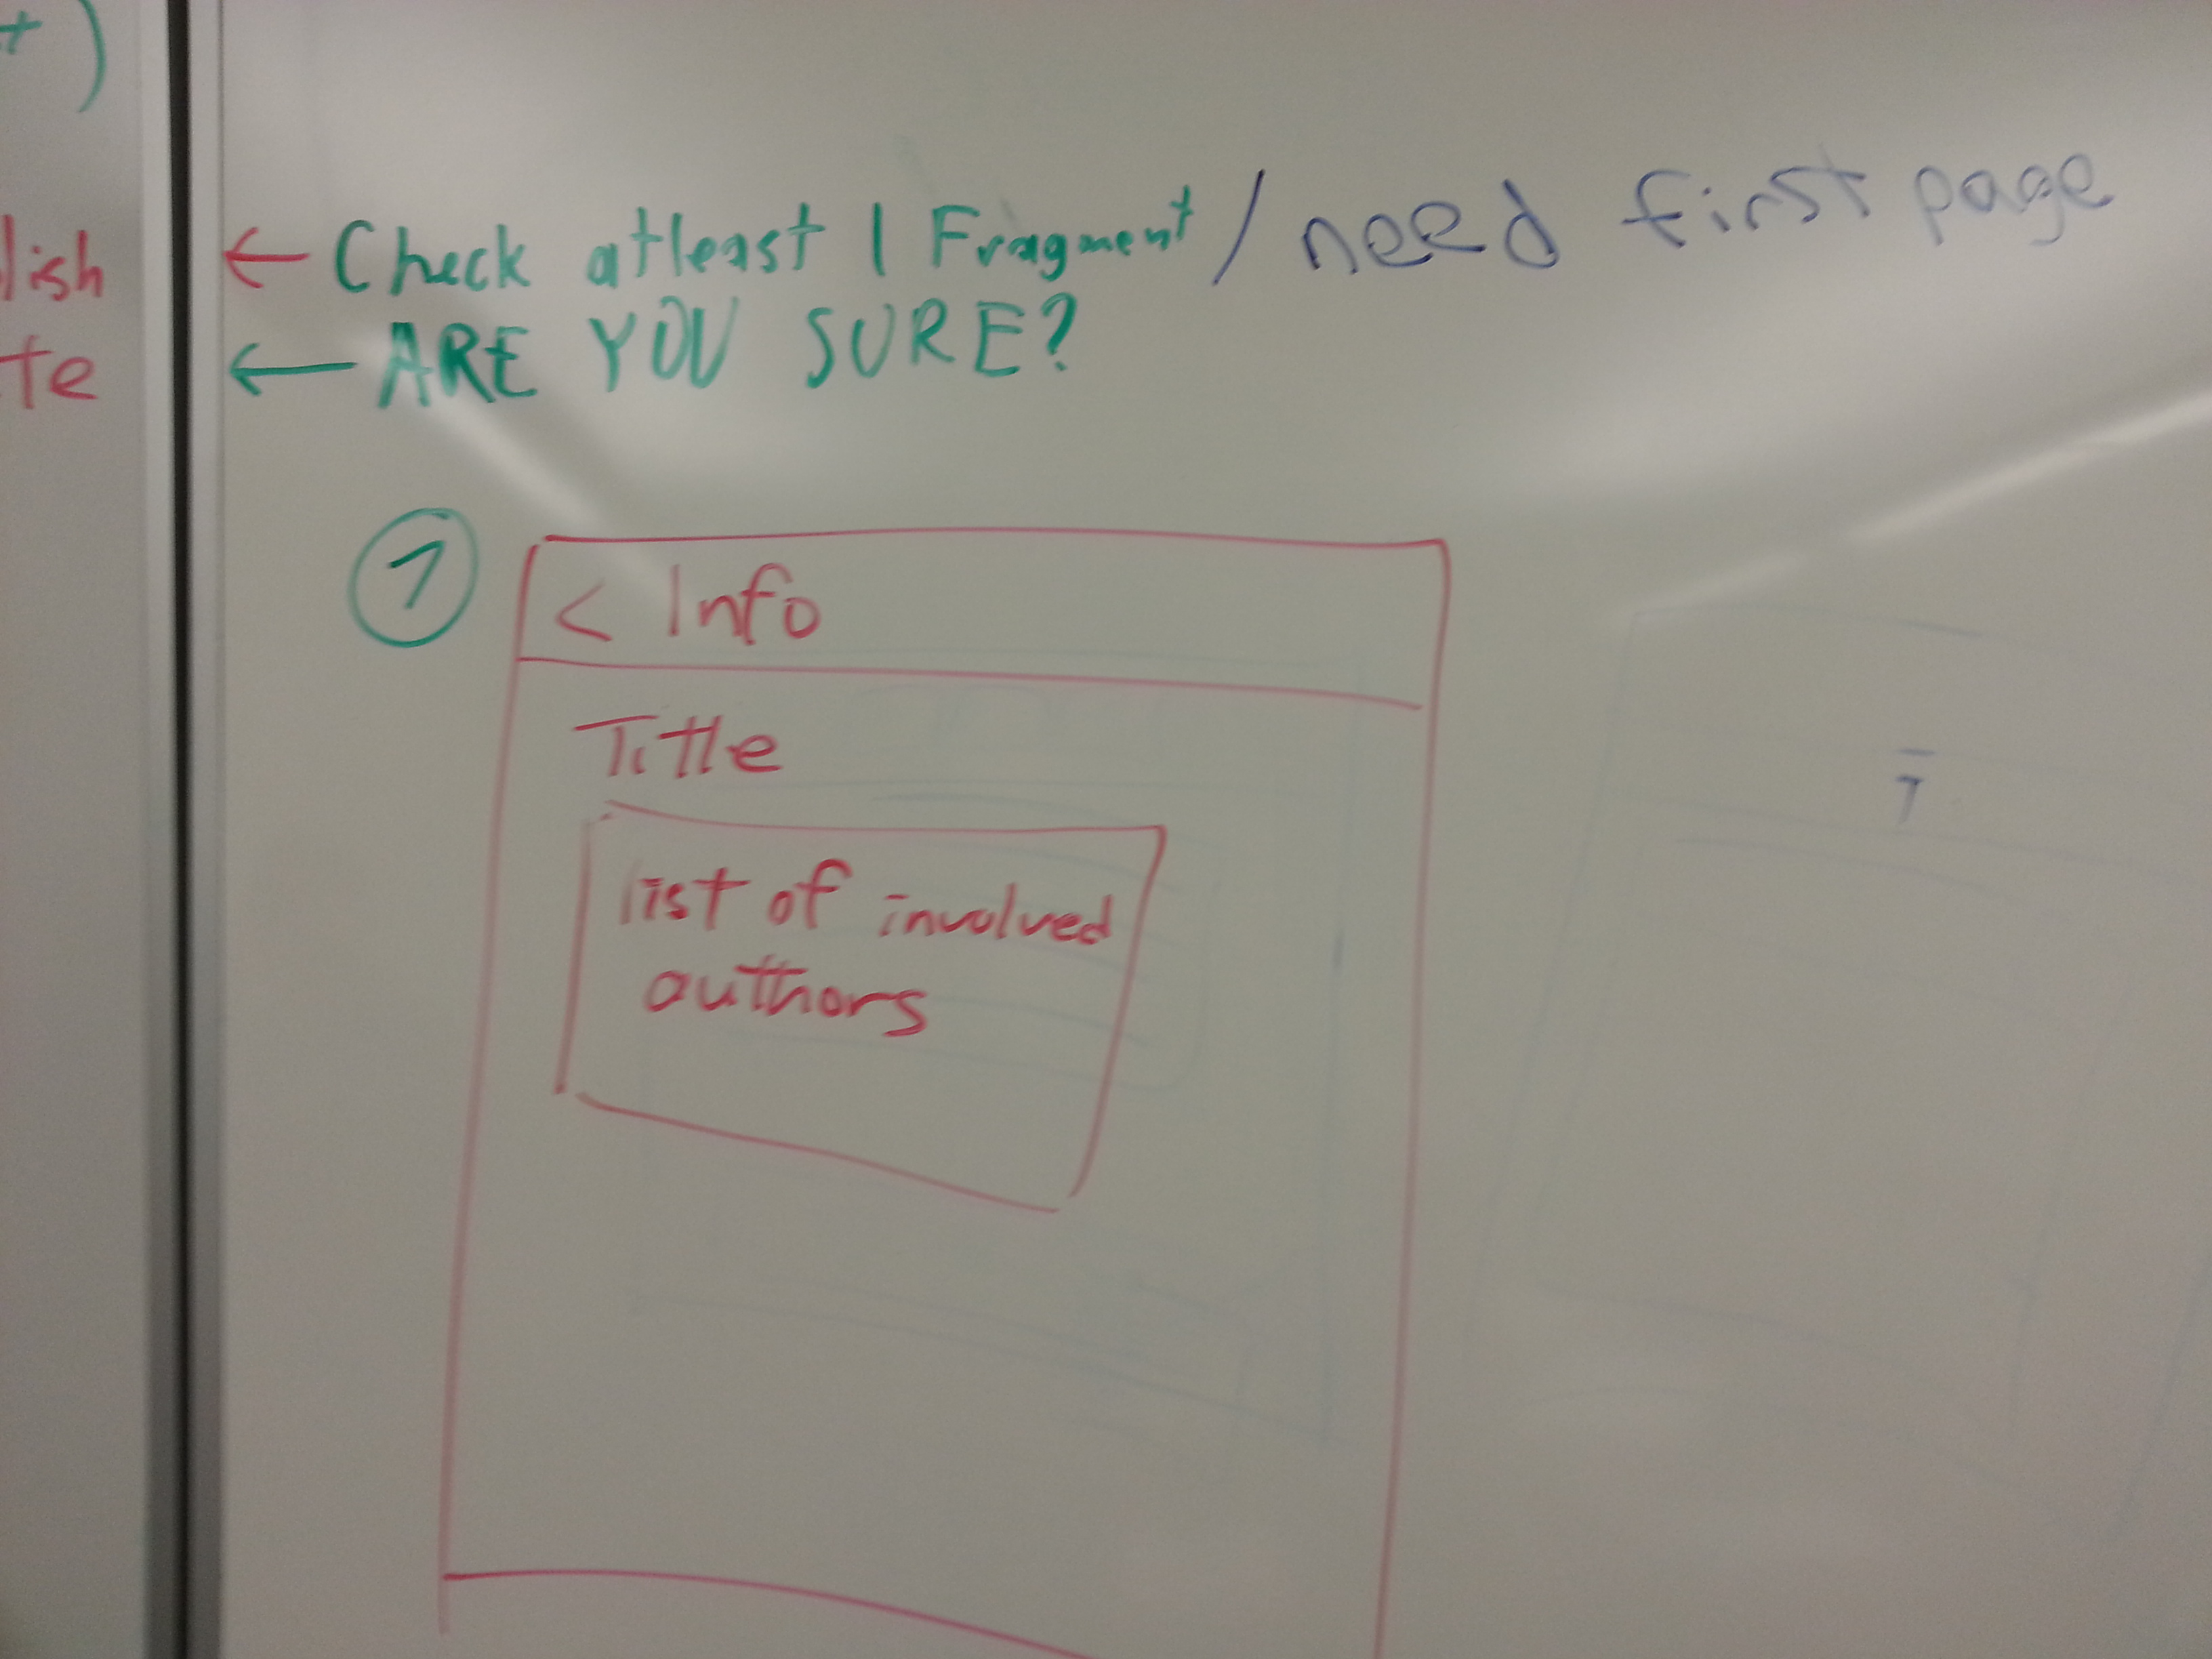 +)
lish ← Check atleast 1 Fragment / need first page
te ← ARE YOU SURE?
1
< Info
Title
list of involved
authors